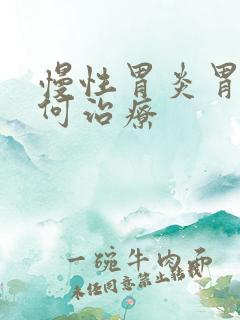 慢性胃炎胃
何治疗
一碗牛肉面
未经同意禁止转载